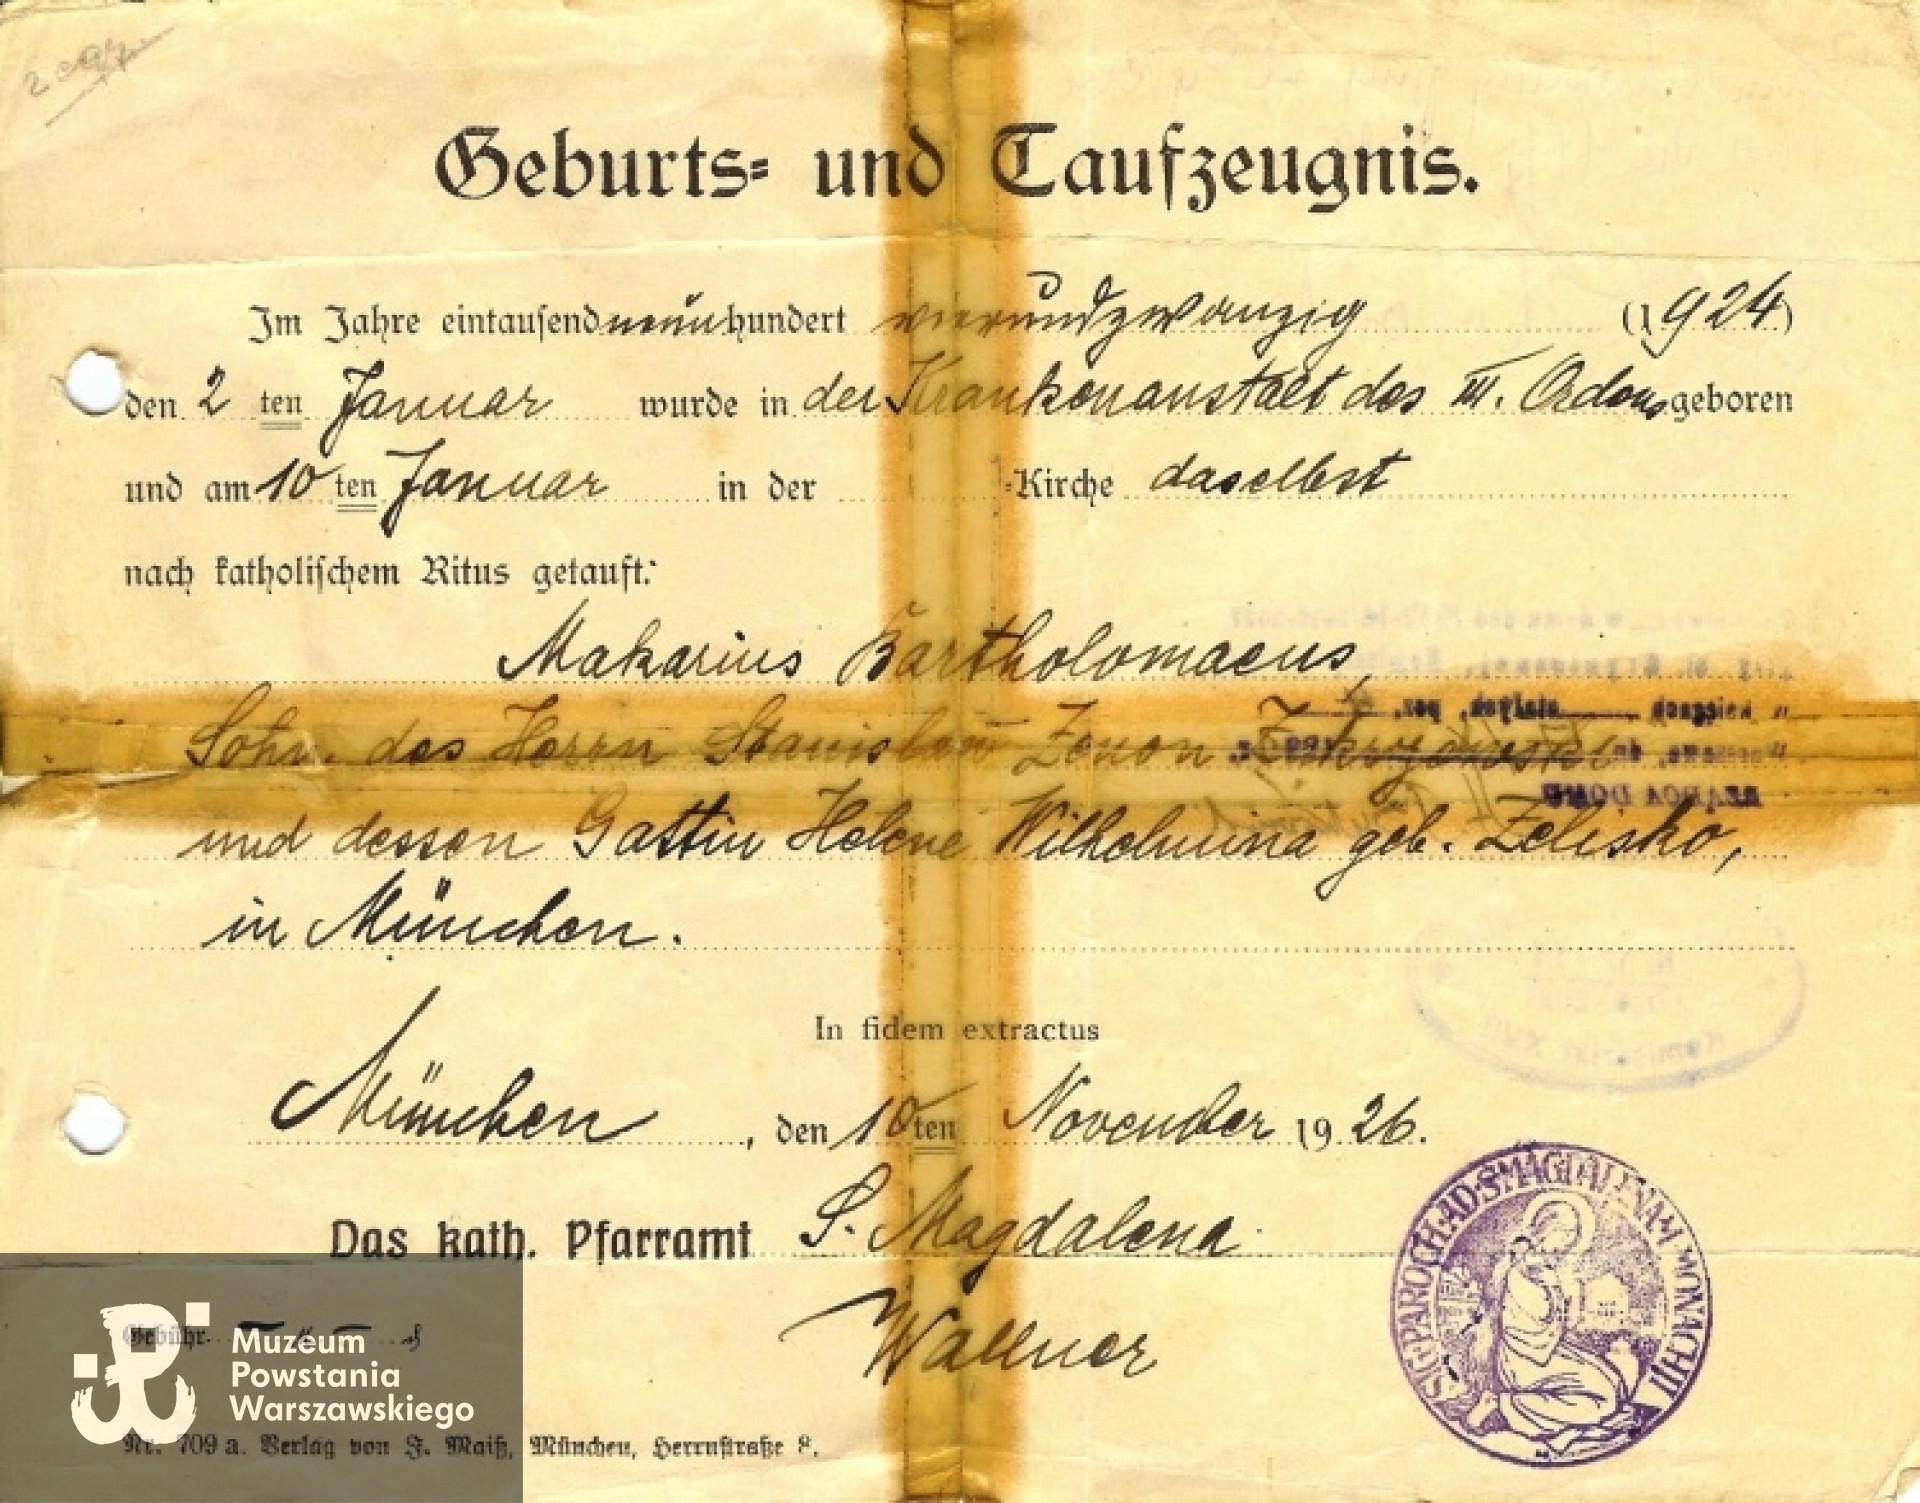 Geburts= und Taufzeugnis.
Im Jahre eintausendneunhundert vierundzwanzig (1924)
den 2 ten Januar wurde in der Krankenanstalt des III. Ordens geboren
und am 10 ten Januar in der =Kirche daselbst
nach katholischem Ritus getauft:
Makarius Bartholomaeus,
Sohn des Herrn Stanislau Zenon
und dessen Gattin Helene Wilhelmina geb. Zelisko,
in München.
In fidem extractus
München, den 10ten November 1926.
Das kath. Pfarramt S. Magdalena
Wallner
SIG. PAROCH. AD S. MAGDALENAM MONACHII
Gebühr
Muzeum
Powstania
Warszawskiego
Nr. 709 a. Verlag von F. Maiß, München, Herrnstraße 8.